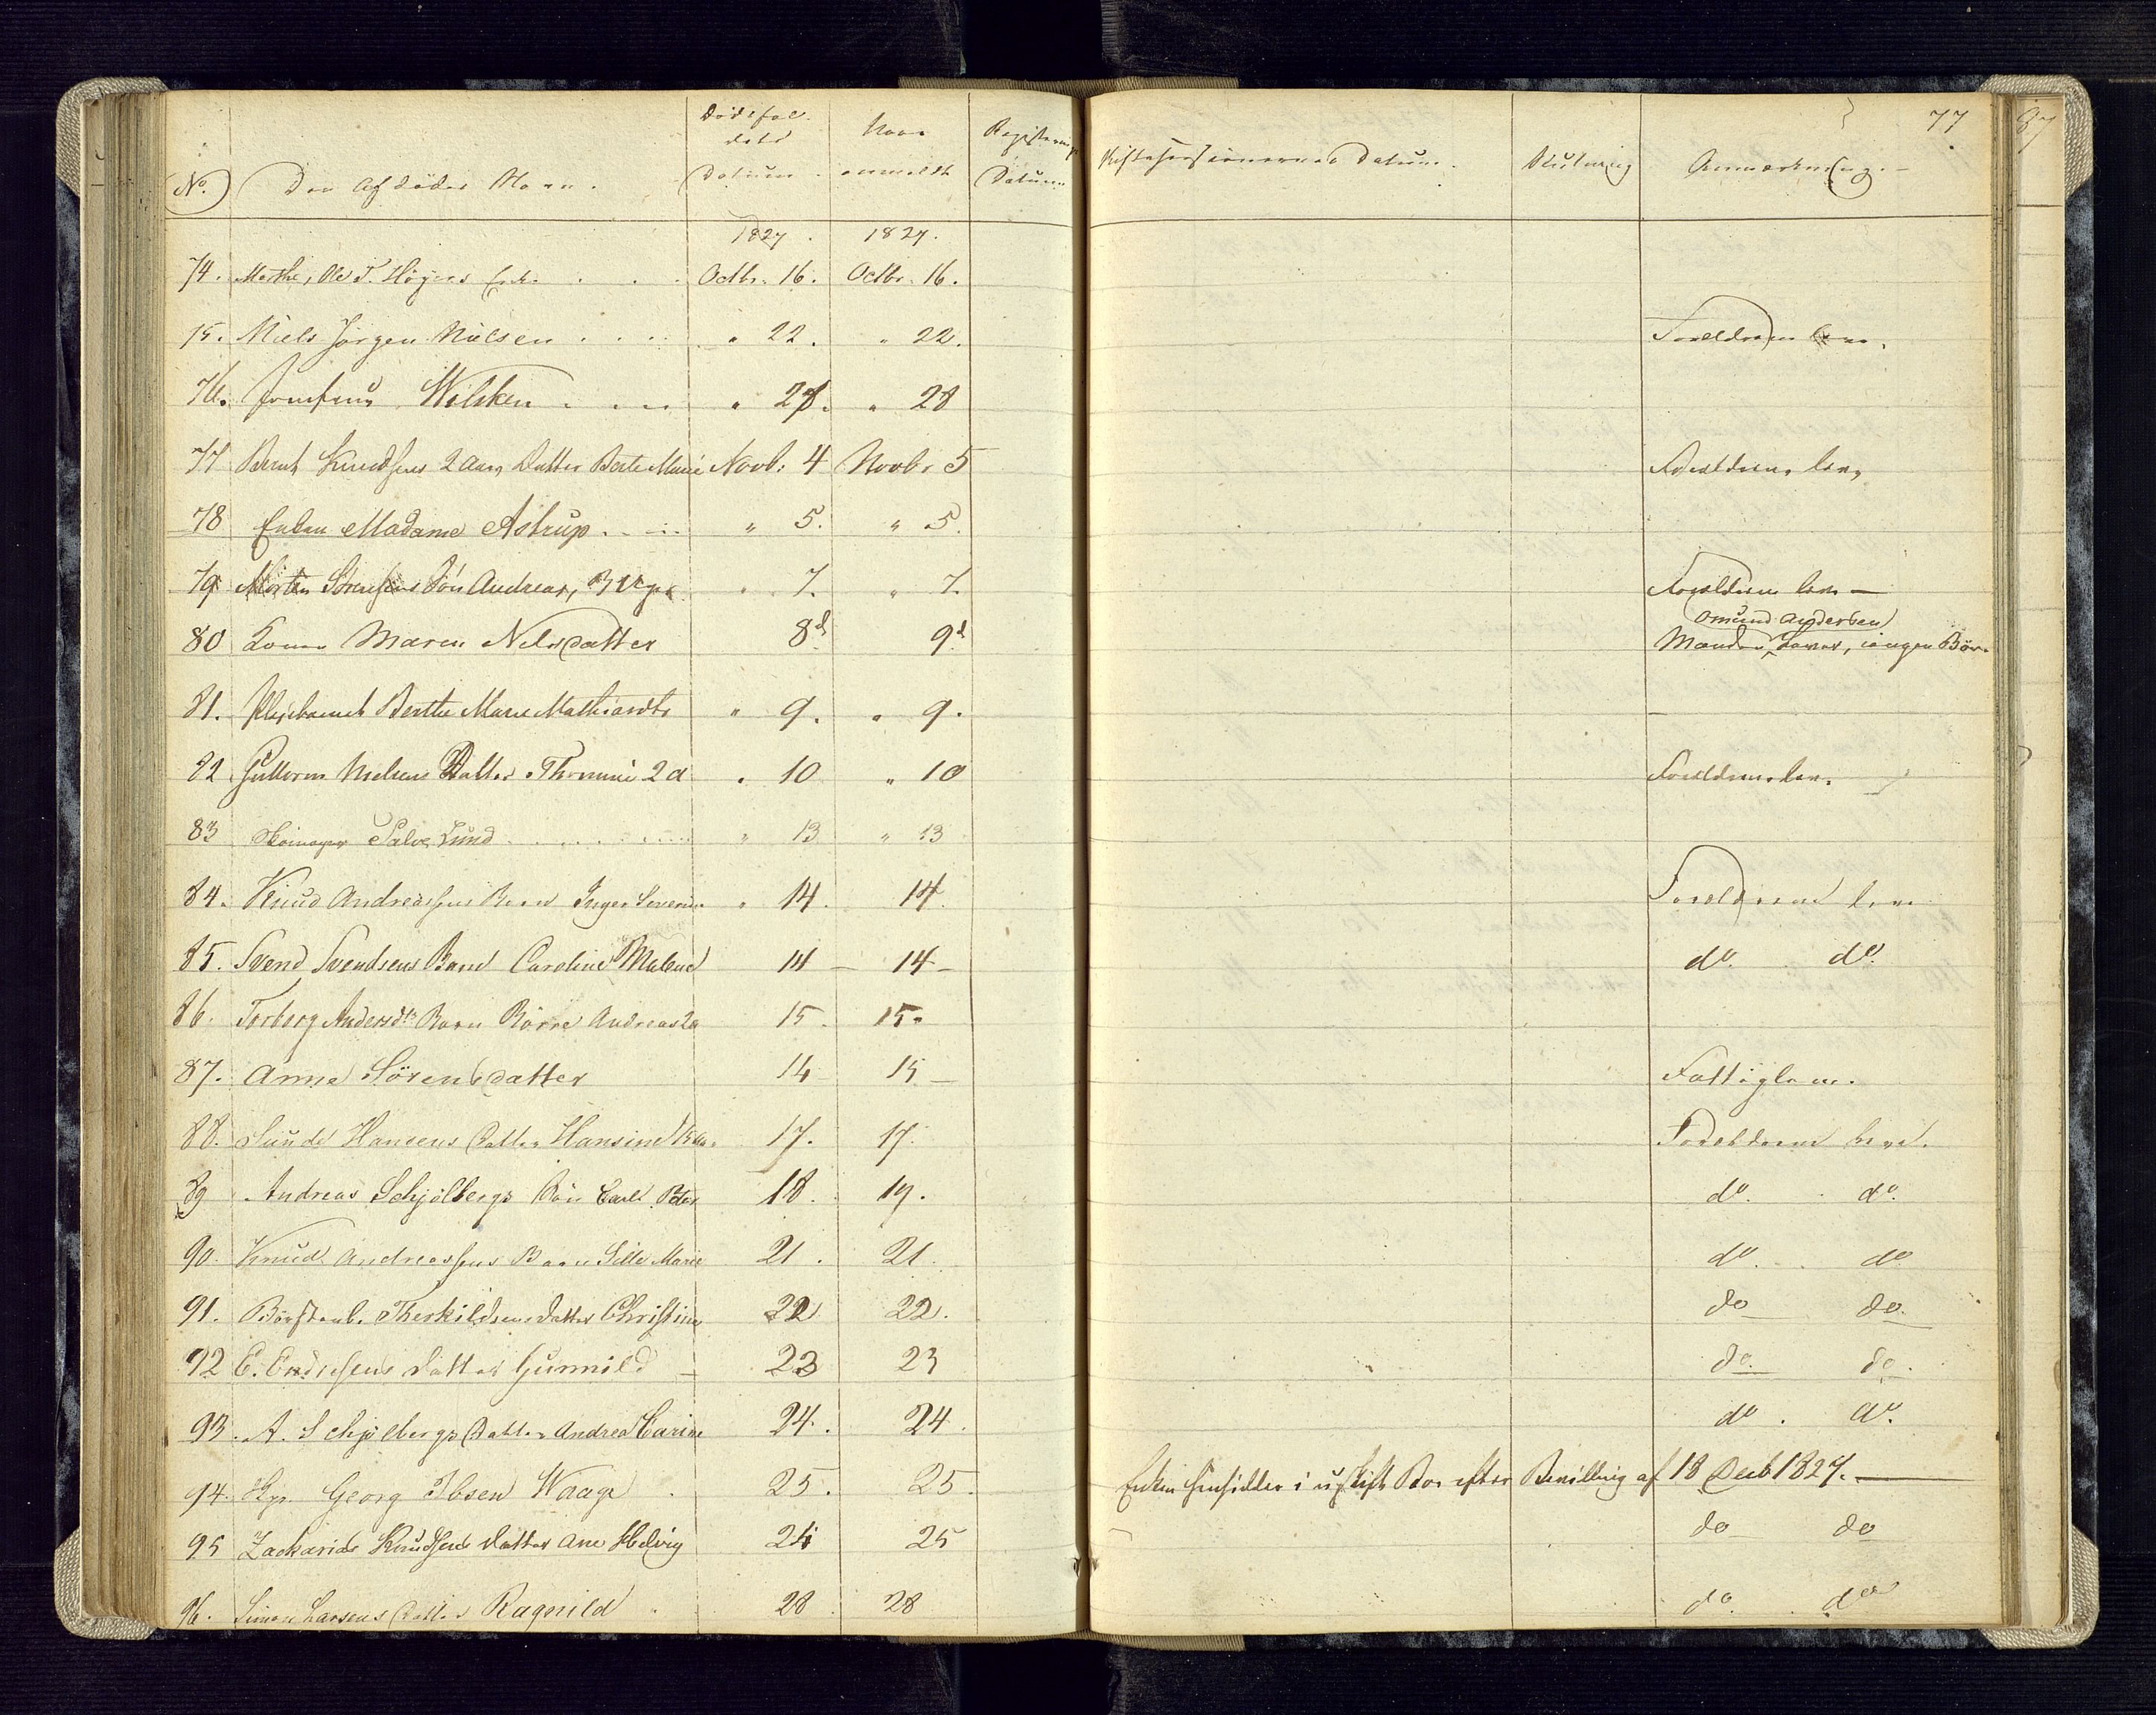 77
No. Den Afdödes Navn. Dödsfal dets Datum. Naar anmeldt Registerings Datum Skiftesessionernes Datum. Slutning Anmærkning.
1827. 1827.
74. Marthe, Ole T. Höyers Enke Octbr. 16. Octbr. 16.
75. Niels Jörgen Nielsen " 22. " 22. Forældrene leve.
76. Jomfrue Wilsken " 28. " 28
77 Bernt Knudsens 2 Aars Datter Berte Marie Novb: 4 Novbr 5 Forældrene leve
78 Enken Madame Astrup " 5. " 5.
79 Morten Sörensens Sön Andreas, 3 Uger " 7. " 7. Forældrene leve —
Omund Andersen
80 Konen Maren Nelsdatter 8d 9d Manden lever, ingen Börn
81. Pleiebarnet Berthe Marie Mathiasdtr " 9. " 9.
82 Guttorm Nielsens Datter Thomine 2 a " 10 " 10 Forældrene leve.
83 Skomager Salve Lund " 13 " 13
84. Knud Andreassens Barn Inger Severine " 14. 14. Forældrene leve
85. Svend Svendsens Barn Caroline Malene 14 — 14 — do. do.
86. Torborg Andersdtr Barn Börre Andreas 15. 15.
87. Anna Sörensdatter 14 15 — Fattiglem.
88. Hansens Datter Hansine 17. 17. Forældrene leve.
89 Andreas Schjölbergs Sön Carl Peter 18. 19. do. do.
90. Knud Andreassens Barn Sille Marie 21. 21. do. do
91. Therkildsens Datter Christine 22 22. do do.
92 E. Endresens Datter Gunnild — 23 23 do. do.
93. A. Schjölbergs Datter Andrea Carine 24. 24. do. do.
94. Georg Ibsen Waage 25. 25. Enken hensidder i uskift Boe efter Bevilling af 18 Decb 1827. —
95 Zacharias Knudsens Datter Ane Helvig 24 25 do do
96. Simon Larsens Datter Ragnild 28 28 do. do